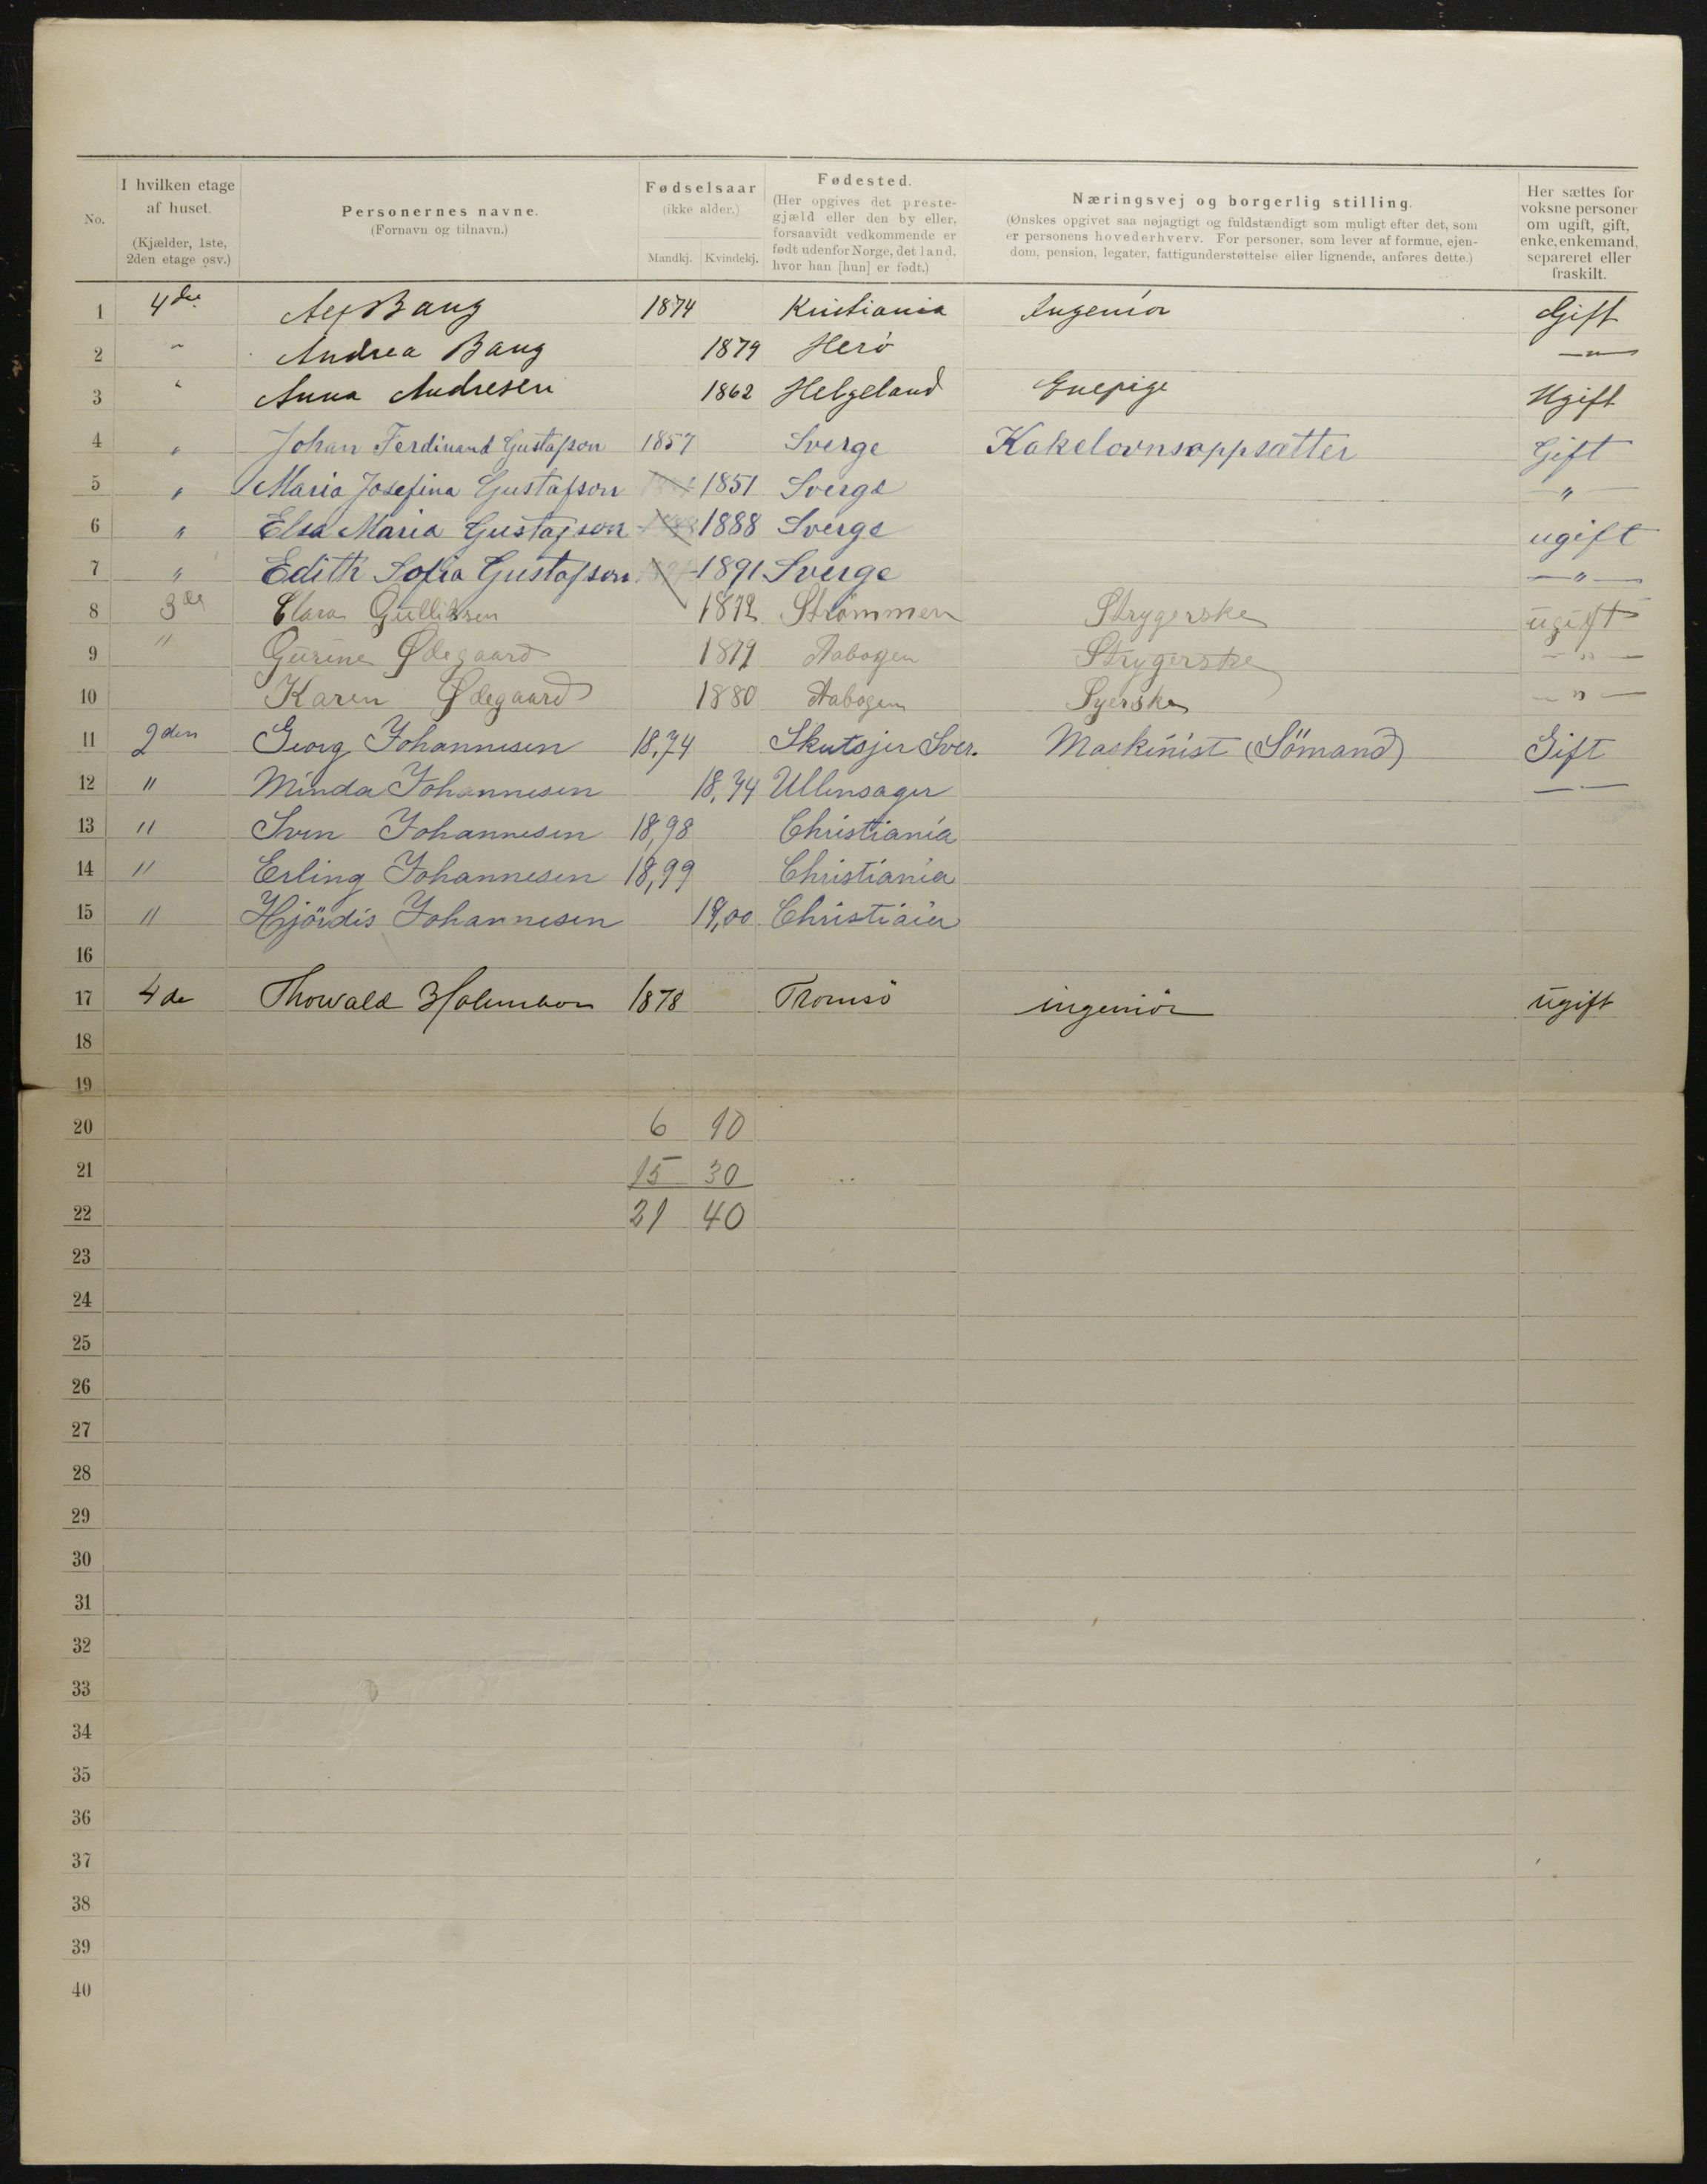 No. | I hvilken etage af huset. (Kjælder, 1ste, 2den etage osv.) | Personernes navne. (Fornavn og tilnavn.) | Fødselsaar (ikke alder.) Mandkj. Kvindekj. | Fødested. (Her opgives det prestegjæld eller den by eller, forsaavidt vedkommende er født udenfor Norge, det land, hvor han [hun] er født.) | Næringsvej og borgerlig stilling. (Ønskes opgivet saa nøjagtigt og fuldstændigt som muligt efter det, som er personens hovederhverv. For personer, som lever af formue, ejendom, pension, legater, fattigunderstøttelse eller lignende, anføres dette.) | Her sættes for voksne personer om ugift, gift, enke, enkemand, separeret eller fraskilt.
1 4de Bang 1874 Kristiania Ingeniør Gift
2 " Andrea Bang 1879 Herø — " —
3 " Anna Andresen 1862 Helgeland Enepige Ugift
4 " Johan Ferdinand Gustafson 1857 Sverge Kakelovnsoppsätter Gift
5 " Maria Josefina Gustafson 1851 Sverge — " —
6 " Elsa Maria Gustafson 1888 Sverge ugift
7 " Edith Sofia Gustafson 1891 Sverge — " —
8 3de Clara Gulliksen 1872 Strømmen Strygerske ugift
9 " Gurine Ødegaard 1879 Aabogen Strygerske — " —
10 Karen Ødegaard 1880 Aabogen Syerske — " —
11 2den Georg Johannesen 18,74 Skutsjer Sver. Maskinist (Sömand) Gift
12 " Minda Johannesen 18,74 Ullensager — —
13 " Sven Johannesen 18,98 Christiania
14 " Erling Johannesen 18,99 Christiania
15 " Hjördis Johannesen 19,00 Christiaia
16
17 4de Thorvald Holmboe 1878 Tromsö ingeniör ugift
18
19
20 6 10
21 15 30
22 21 40
23
24
25
26
27
28
29
30
31
32
33
34
35
36
37
38
39
40